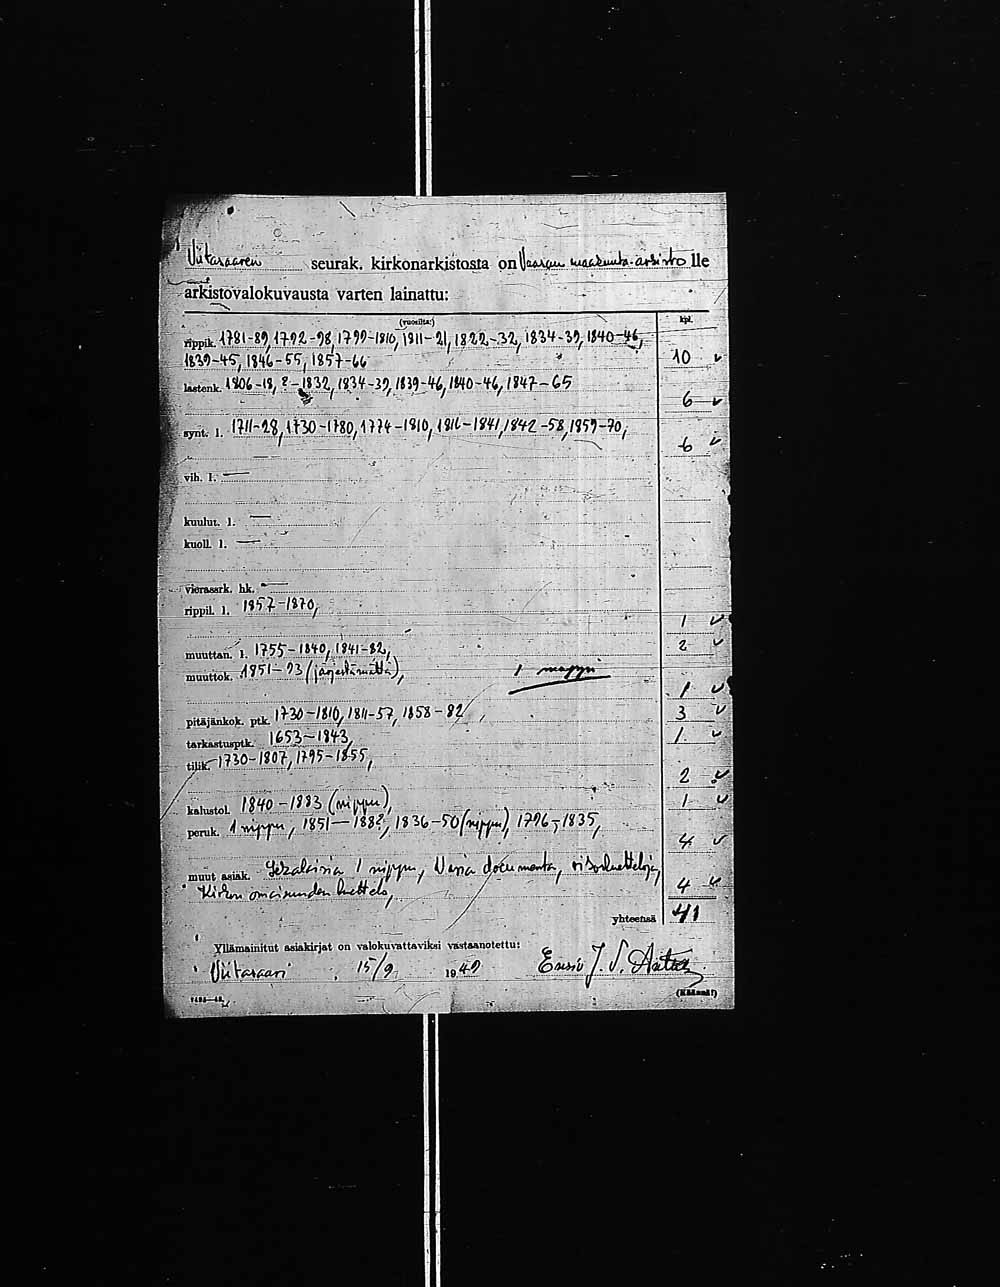 Viitasaaren seurak. kirkonarkistosta on Vaasan maakunta-arkisto lle
arkistovalokuvausta varten lainattu:
(vuosilta:) kpl.
rippik. 1781-89, 1792-98, 1799-1810, 1811-21, 1822-32, 1834-39, 1840-46,
1839-45, 1846-55, 1857-66 10
lastenk. 1806-18, ?-1832, 1834-39, 1839-46, 1840-46, 1847-65
6
synt. l. 1711-28, 1730-1780, 1774-1810, 1816-1841, 1842-58, 1859-70,
6
vih. l. —
kuulut. l. —
kuoll. l. —
vierassrk. hk. —
rippil. l. 1857-1870,
1
muuttan. l. 1755-1840, 1841-82, 2
muuttok. 1851-93 (järjestämättä), 1 mappi
1
pitäjänkok. ptk. 1730-1810, 1811-57, 1858-82, 3
tarkastusptk. 1653-1843, 1
tilik. 1730-1807, 1795-1855,
2
kalustol. 1840-1883 (nippu), 1
peruk. 1 nippu, 1851-188?, 1836-50 (nippu), 1796-1835,
4
muut asiak. Sekalaisia 1 nippu, Varia documenta,
Kirkon omaisuuden luettelo, 4
yhteensä 41
Yllämainitut asiakirjat on valokuvattaviksi vastaanotettu:
Viitasaari 15/9 1949 Ensio J. S.
(Käännä!)